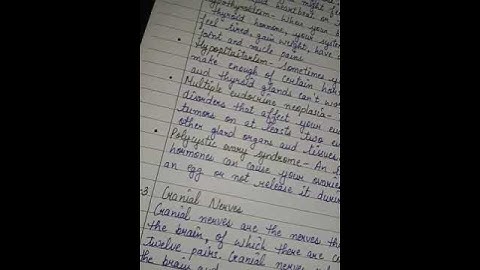 rapid heartbeat or
Hypothyroidism - When your
thyroid hormone, your system
feel tired, gain weight, have
joint and muscle pains.
• Hypopituitarism - Sometimes
make enough of certain
and thyroid glands can't
• Multiple endocrine neoplasia -
disorders that affect your
tumors on at least two
other gland organs and tissues
• Polycystic ovary syndrome - An
hormones can cause your ovaries
an egg or not release it during
3 Cranial Nerves
Cranial nerves are the nerves
the brain, of which there are
twelve pairs. Cranial nerves
the brain and